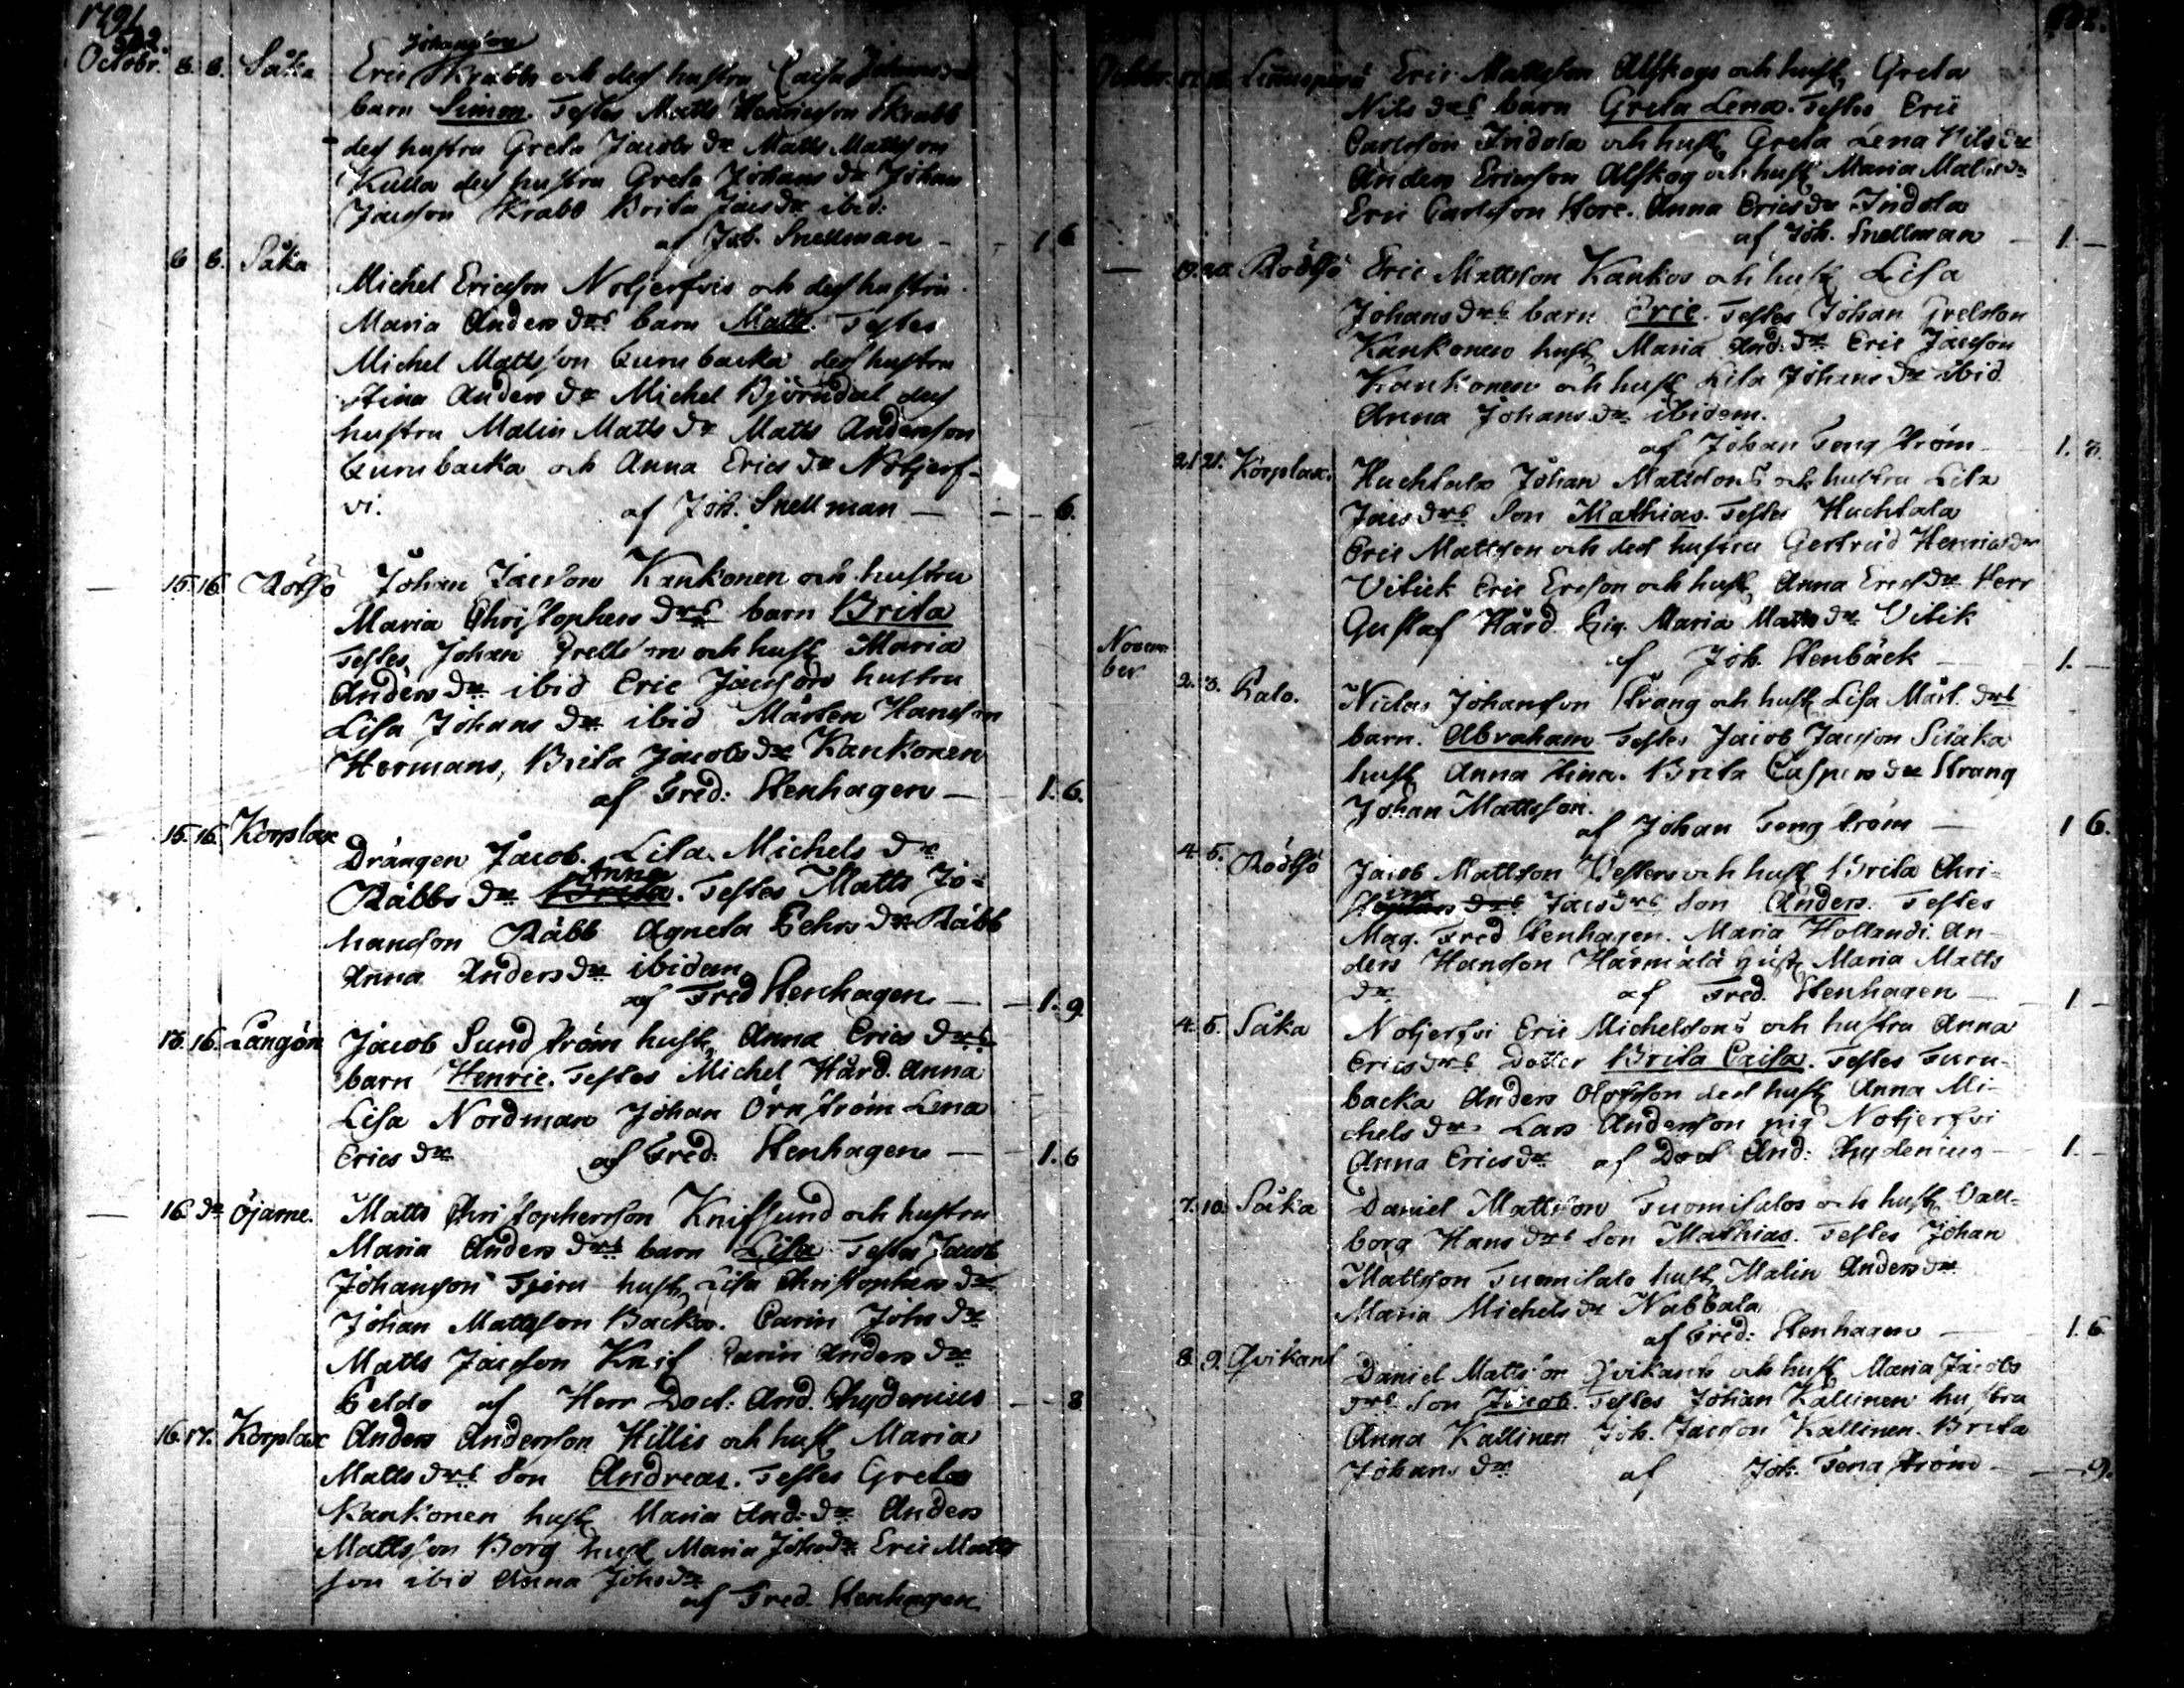 1791
502.
Octobr. 3. 6. Såka Eric Johansson Skrabbs och des hustru Caisa Johans dr
barn Simon. Testes Matts Henricsson Skrabb
des hustru Greta Jacobs dr Matts Mattsson
Kulla des hustru Greta Johans dr Johan
Jacsson Skrabb Brita Jacs dr ibid:
af Joh. Snellman — 1 6
6 6. Såka
Michel Ericsson Nobjerfvis och des hustru
Maria Anders drs barn Matts. Testes
Michel Mattsson Qurnbacka des hustru
Stina Anders dr Michel Björndal des
hustru Malin Matts dr Matts Andersson
Qurnbacka och Anna Erics dr Nobjerf-
vi. af Joh. Snellman — 6.
15. 16. Rödsö Johan Jacsson Kankonen och hustru
Maria Christophers drs barn Brita
Testes Johan Grelsson och hust Maria
Anders dr ibid Eric Jacssons hustru
Lisa Johans dr ibid Mårten Hansson
Hermans, Brita Jacobs dr Kankonen
af Fred: Stenhagen — 1. 6.
15. 16. Korplax
Drängen Jacob. Lisa Michels dr
Räbbs dr Brita Anna. Testes Matts Jo-
hansson Räbb Agneta Pehrs dr Räbb
Anna Anders dr ibidem
af Fred Stenhagen — 1. 9
15. 16. Långön Jacob Sundström hust Anna Erics drs
barn Henric. Testes Michel Hård. Anna
Lisa Nordman Johan Örnström Lena
Erics dr af Fred: Stenhagen — 1. 6
16 do Öjarne. Matts Christophersson Knifsund och hustru
Maria Anders drs barn Lisa Testes Jacob
Johansson Tjeru hust Lisa Christophers dr
Johan Mattsson Backa. Carin Johs dr
Matts Jacsson Knif Carin Anders dr
Peldo af Herr Doct. And. Chydenius — 8
16. 17. Korplax Anders Andersson Hillis och hust Maria
Matts drs Son Andreas. Testes Grels
Kankonen hust Maria And: dr Anders
Mattsson Borg hust Maria Johs dr Eric Matts
son ibid Anna Johs dr
af Fred. Stenhagen
Octobr. 17. 18. Linnusperä Eric Mattsson Alskogs och hust Greta
Nils drs barn Greta Lena. Testes Eric
Carlsson Indola och hust Greta Lena Nils dr
Anders Ericsson Alskog och hust Maria Matts dr
Eric Carlsson Store. Anna Erics dr Indola
af Joh. Snellman — 1. —
19. 20. Rödsö Eric Mattsson Kankos och hust Lisa
Johans drs barn Eric. Testes Johan Grelsson
Kankonen hust Maria And: dr Eric Jacsson
Kankonen och hust Lisa Johans dr ibid
Anna Johans dr ibidem.
af Johan Tengström — 1. 3.
21 21. Korplax. Huchtala Johan Mattssons och hustru Lisa
Jacs drs Son Mathias. Testes Huchtala
Eric Mattsson och des hustru Gertrud Henrics dr
Vitick Eric Ersson och hust Anna Erics dr Herr
Gustaf Hård. Pig. Maria Matts dr Vitik
af Joh. Stenbäck — 1. —
Novem-
ber 2. 3. Kalo. Niclas Johansson Strang och hust Lisa Mårt. drs
barn. Abraham Testes Jacob Jacsson Siiaka
hust Anna Stina. Brita Caspers dr Strang
Johan Mattsson.
af Johan Tengström — 1 6.
4. 5. Rödsö Jacob Mattsson Westers och hust Brita Chri-
stina Jacs drs Son Anders. Testes
Mag. Fred Stenhagen. Maria Hollandi. An-
ders Hansson Härmälä hust Maria Matts
dr af Fred. Stenhagen — 1 —
4. 5. Såka Nobjerfvi Eric Michelssons och hustru Anna
Erics drs Dotter Brita Caisa. Testes Furu-
backa Anders Olofsson des hust Anna Mi-
chels dr Lars Andersson pig Nobjerfvi
Anna Erics dr af Doct And: Chydenius — 1. —
7. 10. Såka Daniel Mattsson Tuomisalos och hust Vall-
borg Hans drs Son Mathias. Testes Johan
Mattsson Tuomisalo hust Malin Anders dr
Maria Michels dr Nabbala
af Fred: Stenhagen — 1. 6
8. 9. Qvikant Daniel Mattsson Qvikants och hust Maria Jacobs
drs Son Jacob. Testes Johan Kallinen hustru
Anna Kallinen Joh. Jacsson Kallinen. Brita
Johans dr af Joh. Tengström — 9.